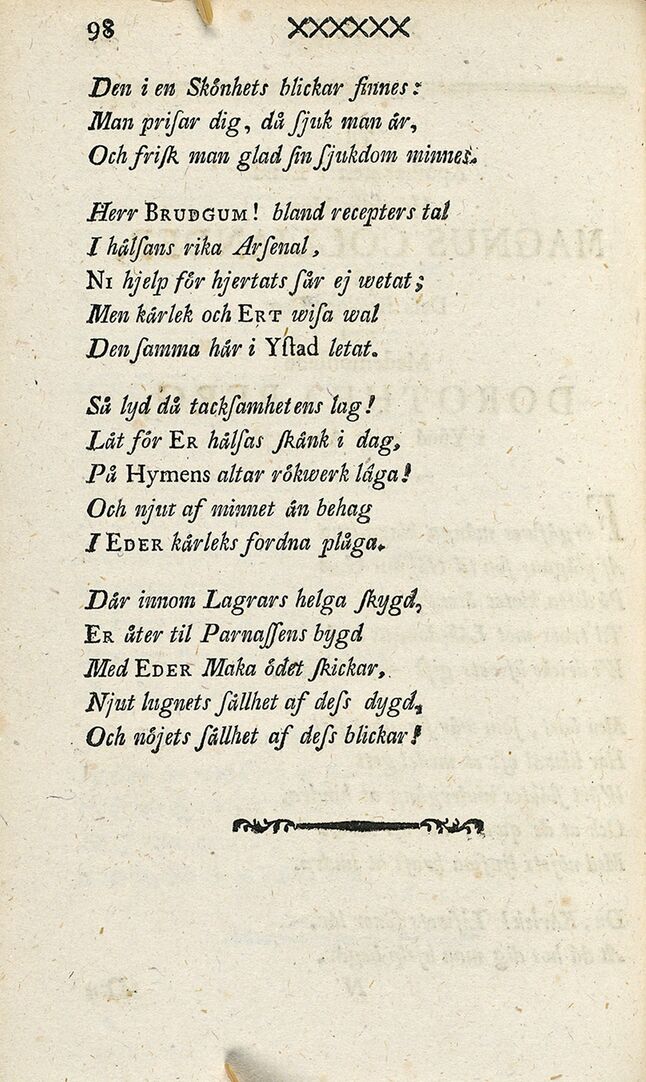 98 XXXXXX
Den i en Skönhets blickar finnes:
Man priſar dig, då ſjuk man är,
Och friſk man glad ſin ſjukdom minnes.
Herr BRUDGUM! bland recepters tal
I hälſans rika Arſenal,
NI hjelp för hjertats ſår ej wetat;
Men kärlek och ERT wiſa wal
Den ſamma här i Yſtad letat.
Så lyd då tackſamhetens lag!
Låt för ER hälſas ſkänk i dag,
På Hymens altar rökwerk låga!
Och njut af minnet än behag
I EDER kärleks fordna plåga.
Där innom Lagrars helga ſkygd,
ER åter til Parnaſſens bygd
Med EDER Maka ödet ſkickar,
Njut lugnets ſällhet af deſs dygd,
Och nöjets ſällhet af deſs blickar!